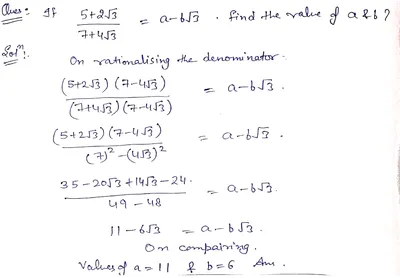 Ques: If (5+2√3)/(7+4√3) = a-b√3 . find the value of a & b?
Solⁿ:
On rationalising the denominator.
(5+2√3)(7-4√3)/(7+4√3)(7-4√3) = a-b√3
(5+2√3)(7-4√3)/(7)²-(4√3)² = a-b√3.
35-20√3+14√3-24./49-48 = a-b√3.
11-6√3 = a-b√3.
On compairing.
Values of a=11 & b=6 Ans.